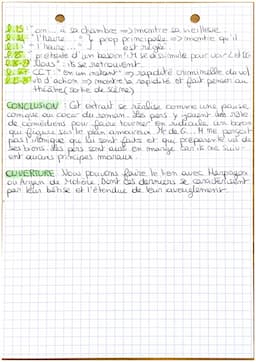 l.13 "on... à sa chambre => montre sa vieillesse
"l'heure... " } prop principale => montre qu'il
l.11 "l'heure... " } est réglé
prétexte d'un besoin: M se dissimule pour voir C et
: ils se retrouvent.
CCT: "en un instant" => rapidité criminable du vol
vb d'action => montre la rapidité et fait penser au
théâtre (sortie de scène)
CONCLUSION: Cet extrait se réalise comme une pause
comique au cœur du roman. Les pers y jouent des rôles
de comédiens pour faire tourner en ridicule un baron
qui figure sur le plan amoureux. M. de G... M ne perçoit
pas l'ironique qui lui sont faits et que préparent vis de
ses biens. Les pers sont aussi en marge car ils ne suiv-
ent aucuns principes moraux.
OUVERTURE: Nous pouvons faire le lien avec Harpagon
ou Argan de Molière. Dont ces derniers se caractérisent
par leur bêtise et l'étendue de leur aveuglement.